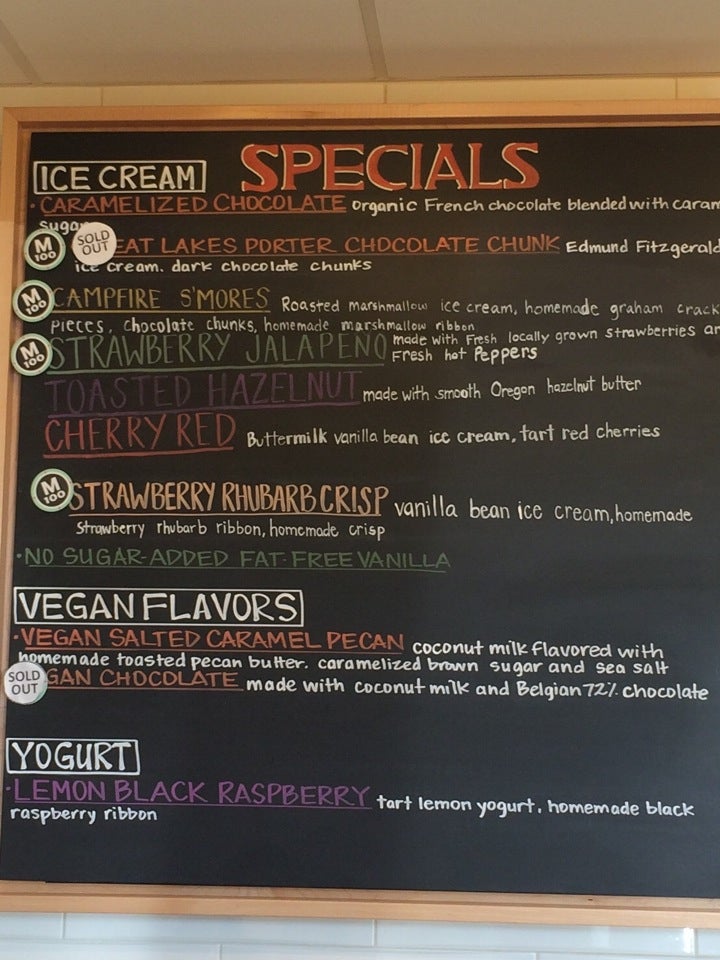 SPECIALS
ICE CREAM
· CARAMELIZED CHOCOLATE organic French chocolate blended with caram
sugar
M 100 SOLD OUT EAT LAKES PORTER CHOCOLATE CHUNK Edmund Fitzgerald
ice cream. dark chocolate chunks
M 100 CAMPFIRE S'MORES Roasted marshmallow ice cream, homemade graham crack
pieces, chocolate chunks, homemade marshmallow ribbon
M 100 STRAWBERRY JALAPENO made with Fresh locally grown strawberries an
Fresh hot Peppers
TOASTED HAZELNUT made with smooth Oregon hazelnut butter
CHERRY RED Buttermilk vanilla bean ice cream, tart red cherries
M 100 STRAWBERRY RHUBARB CRISP vanilla bean ice cream, homemade
Strawberry rhubarb ribbon, homemade crisp
· NO SUGAR-ADDED FAT-FREE VANILLA
VEGAN FLAVORS
· VEGAN SALTED CARAMEL PECAN coconut milk flavored with
homemade toasted pecan butter. caramelized brown sugar and sea salt
SOLD OUT GAN CHOCOLATE made with coconut milk and Belgian 72% chocolate
YOGURT
· LEMON BLACK RASPBERRY tart lemon yogurt, homemade black
raspberry ribbon